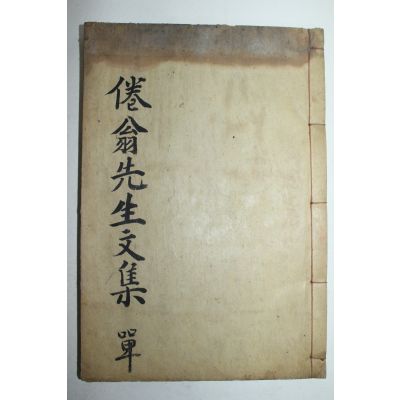 倦翁先生文集 單